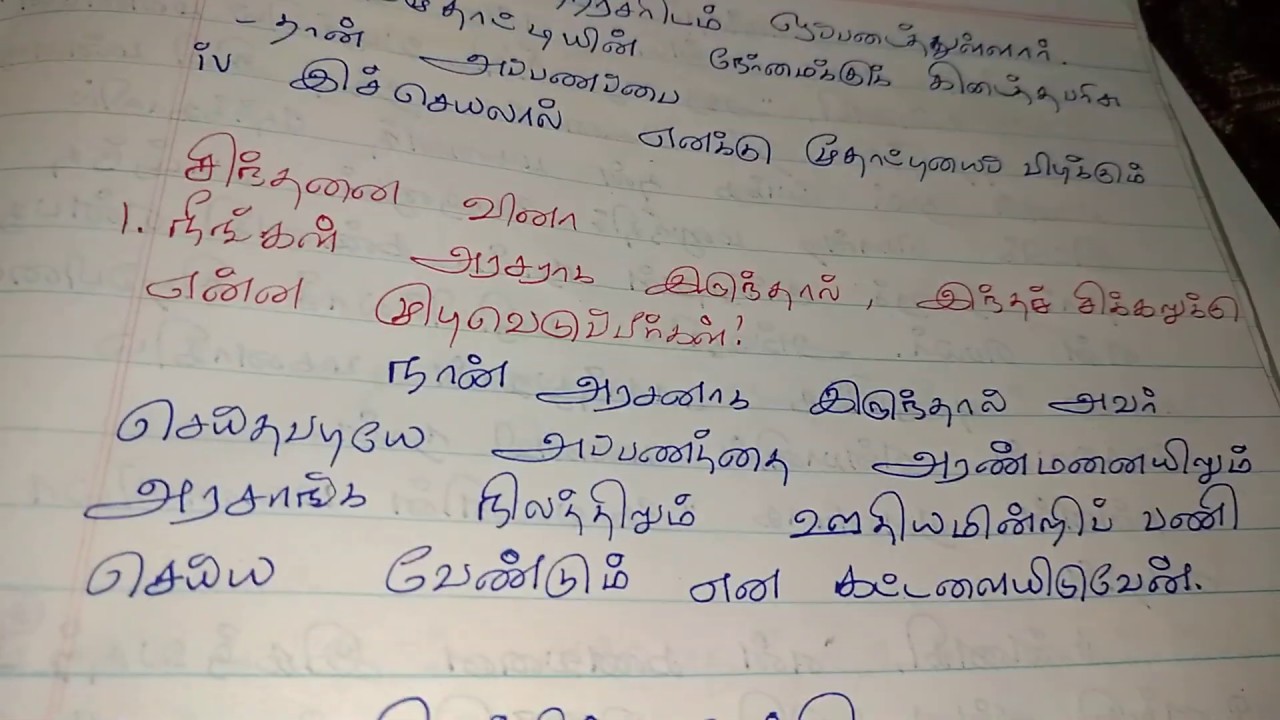 ஒப்படைத்துள்ளார்.
- தான் மூதாட்டியின் நேர்மைக்குக் கிடைத்த பரிசு
iv அப்பணப்பை
இச் செயலால் எனக்கு மூதாட்டியைப் பிடிக்கும்
சிந்தனை வினா
1. நீங்கள் அரசராக இருந்தால், இந்தச் சிக்கலுக்கு
என்ன முடிவெடுப்பீர்கள்?
நான் அரசனாக இருந்தால் அவர்
செய்தபடியே அப்பணத்தை அரண்மனையிலும்
அரசாங்க நிலத்திலும் ஊதியமின்றிப் பணி
செய்ய வேண்டும் என கட்டளையிடுவேன்.